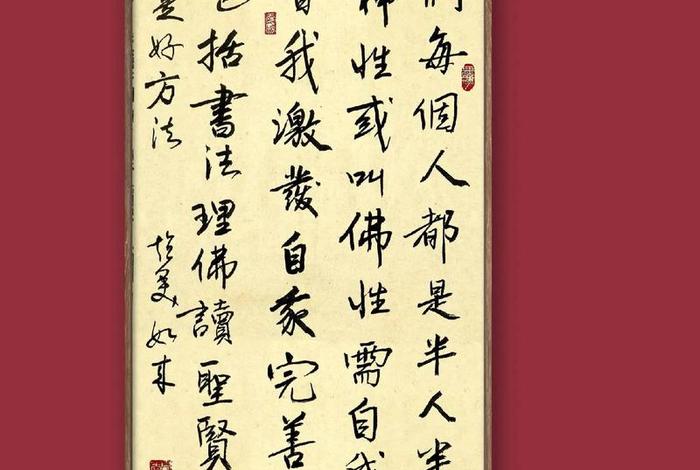 們每個人都是半人半
神性或叫佛性需自我
自我激發自我完善
包括書法理佛讀聖賢
是好方法
如来